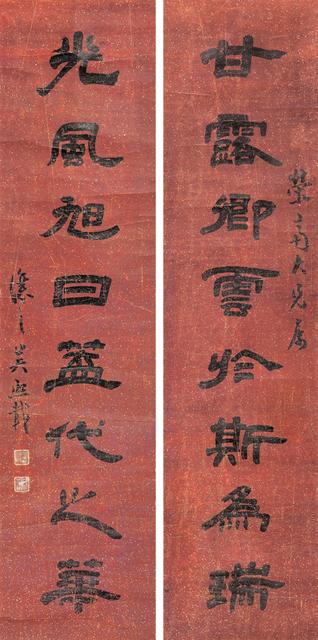 甘露卿雲於斯為瑞
大兄屬
光風旭日蓋代之華
讓之吳熙載